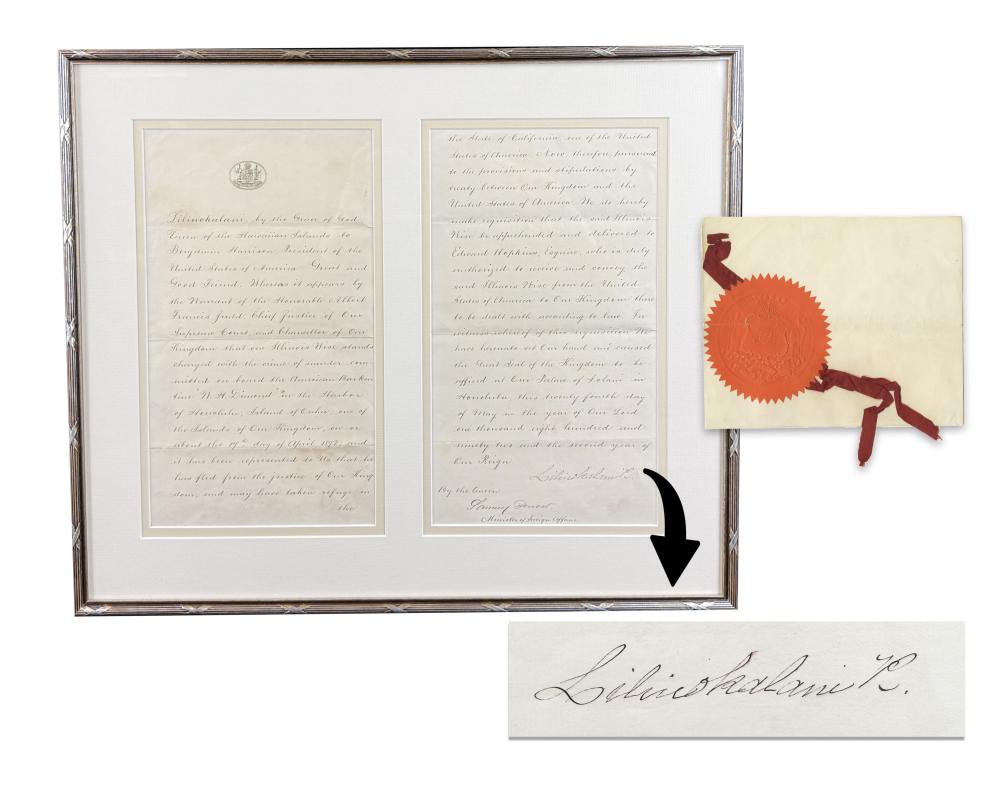 Liliuokalani, by the Grace of God
Queen of the Hawaiian Islands to
Benjamin Harrison President of the
United States of America Great and
Good Friend. Whereas it appears by
the Warrant of the Honorable Albert
Francis Judd, Chief Justice of Our
Supreme Court, and Chancellor of Our
Kingdom that one Illinois West stands
charged with the crime of murder com
mitted on board the American Barken
tine "W. H. Dimond" in the Harbor
of Honolulu, Island of Oahu, one of
the Islands of Our Kingdom, on or
about the 19th day of April 1892, and
it has been represented to Us that he
has fled from the justice of Our King
dom, and may have taken refuge in
the
the State of California, one of the United
States of America. Now, therefore, pursuant
to the provisions and stipulations by
treaty between Our Kingdom and the
United States of America, We do hereby
make requisition that the said Illinois
West be apprehended and delivered to
Edward Hopkins, Esquire, who is duly
authorized to receive and convey the
said Illinois West from the United
States of America to Our Kingdom there
to be dealt with according to law. In
witness whereof of this requisition We
have hereunto set Our Hand and caused
the Great Seal of the Kingdom to be
affixed at Our Palace of Iolani in
Honolulu, this twenty fourth day
of May in the year of Our Lord
one thousand eight hundred and
ninety two and the second year of
Our Reign
Liliuokalani R.
By the Queen
Minister of Foreign Affairs
Liliuokalani R.